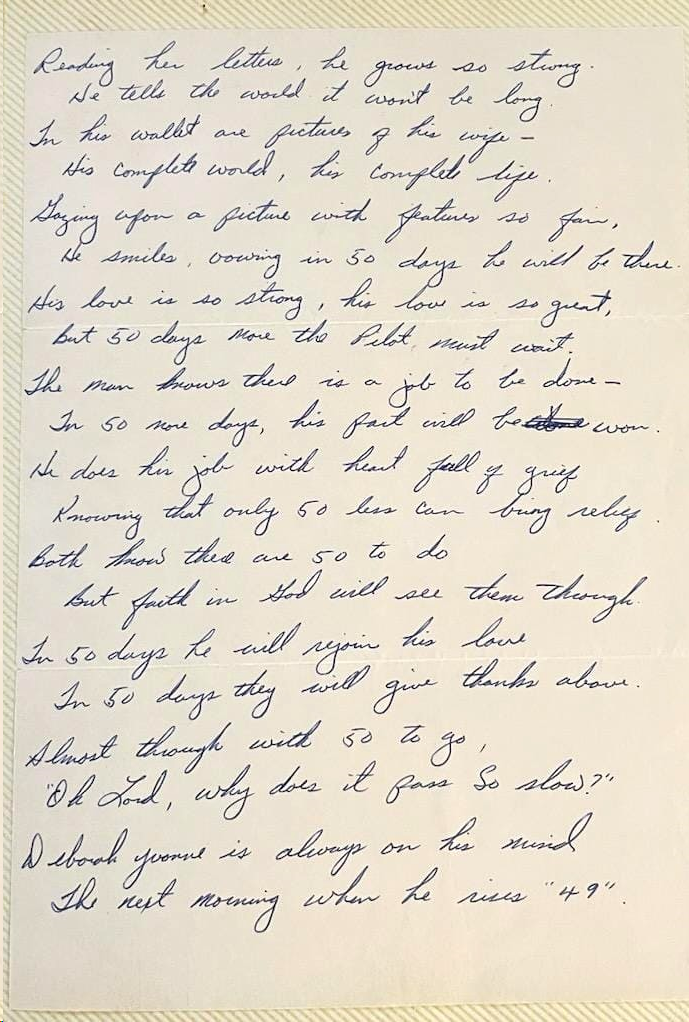 Reading her letters, he grows so strong.
He tells the world it won't be long.
In his wallet are pictures of his wife –
His complete world, his complete life.
Gazing upon a picture with features so fair,
He smiles, vowing in 50 days he will be there.
His love is so strong, his love is so great,
But 50 days more the Pilot must wait.
The man knows there is a job to be done –
In 50 more days, his part will be won.
He does his job with heart full of grief
Knowing that only 50 less can bring relief.
Both know there are 50 to do
But faith in God will see them through.
In 50 days he will rejoin his love
In 50 days they will give thanks above.
Almost through with 50 to go,
"Oh Lord, why does it pass So slow?"
Deborah Yvonne is always on his mind
The next morning when he rises "49".